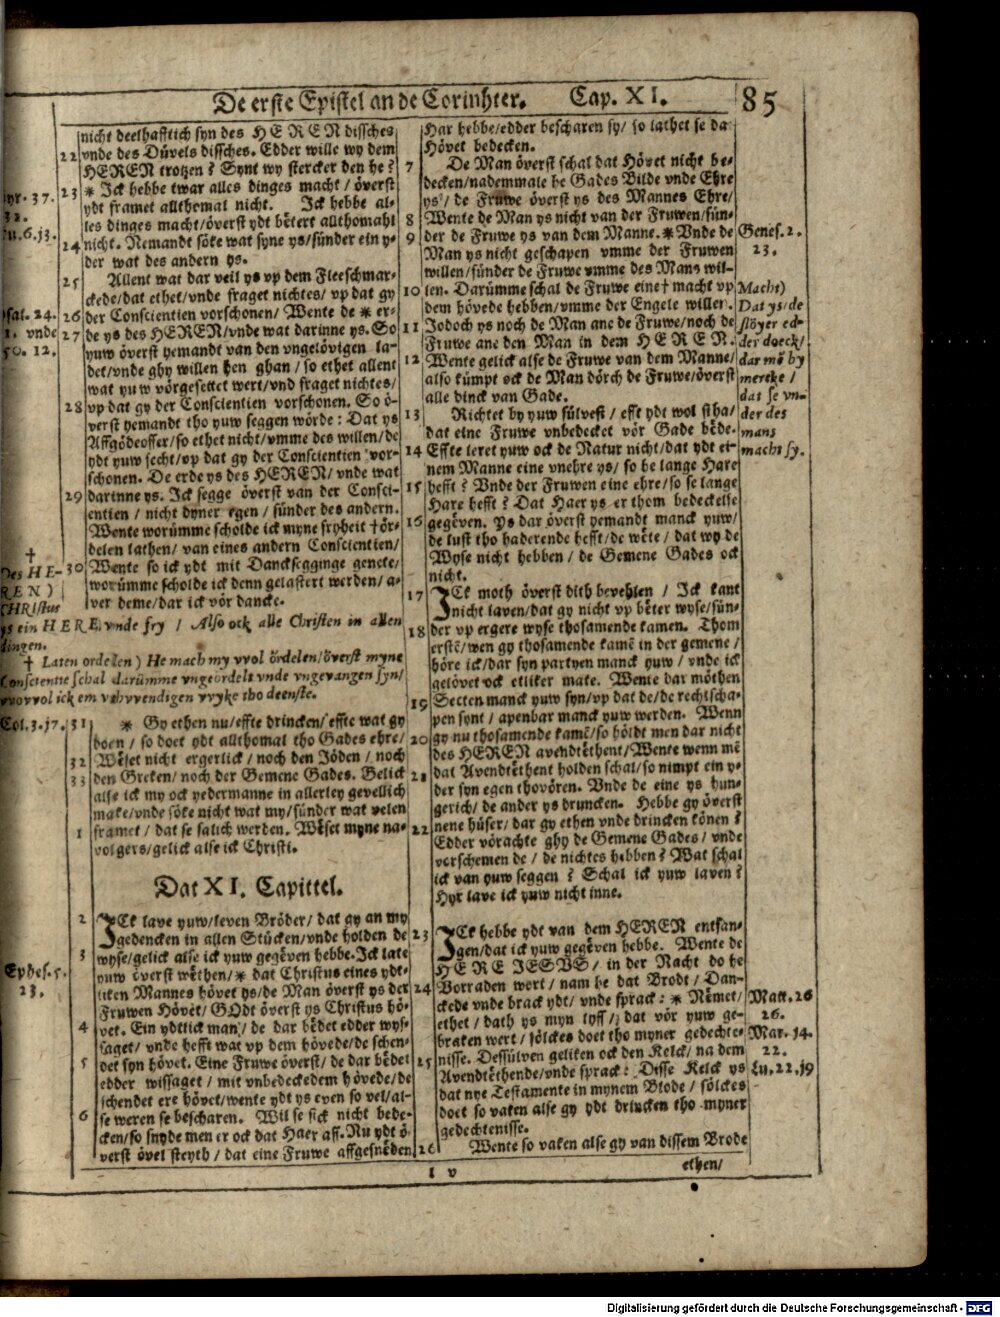 De erste Epistel an de Corinhter. Cap. XI. 85
nicht deelhafftich syn des HEREN dissches
22 vnde des Düvels dissches. Edder wille wy dem
HEREN trotzen? Synt wy stercker den he?
23 * Ick hebbe twar alles dinges macht / överst
ydt framet allthemal nicht. Ick hebbe al-
les dinges macht / överst ydt bëtert allthomahl
24 nicht. Nemandt söke wat syne ys / sünder ein y-
der wat des andern ys.
25 Allent wat dar veil ys vp dem Fleeschmar-
ckede / dat ethet / vnde fraget nichtes / vp dat gy
26 der Conscientien vorschonen / Wente de * er-
27 de ys des HEREN / vnde wat darinne ys. So
yuw överst yemandt van den vngelövigen la-
det / vnde ghy willen hen ghan / so ethet allent
wat yuw vörgesettet wert / vnd fraget nichtes /
28 vp dat gy der Conscientien vorschonen. So ö-
verst yemandt tho yuw seggen wörde: Dat ys
Affgödeoffer / so ethet nicht / vmme des willen / de
ydt yuw secht / vp dat gy der Conscientien vor-
schonen. De erde ys des HEREN / vnde wat
29 darinne ys. Ick segge överst van der Consci-
entien / nicht dyner egen / sünder des andern.
Wente worümme scholde ick myne fryheit † ör-
delen lathen / van eines andern Conscientien /
30 Wente so ick ydt mit Dancksegginge genete /
worümme scholde ick denn gelastert werden / a-
ver deme / dar ick vör dancke.
yr. 37.
32.
Lu. 6. 13.
Psal. 24.
1. vnde
50. 12.
†
Des HE-
REN)
CHRIstus
ys ein HERE, vnde fry / Also ock alle Christen in allen
dingen.
† Laten ordelen) He mach my vvol ördelen / överst myne
Conscientie schal darümme vngeordelt vnde vngevangen syn /
vvovvol ick em vthvvendigen vvyke tho deenste.
Col. 3. 17. 31 * Gy ethen nu / effte drincken / effte wat gy
doen / so doet ydt allthomal tho Gades ehre /
32 Wëset nicht ergerlick / noch den Jöden / noch
33 den Greken / noch der Gemene Gades. Gelick
alse ick my ock yedermanne in allerley gevellich
make / vnde söke nicht wat my / sünder wat velen
1 framet / dat se salich werden. Wëset myne na-
volgers / gelick alse ick Christi.
Dat XI. Capittel.
2 ICk lave yuw / leven Bröder / dat gy an my
gedencken in allen Stücken / vnde holden de
3 wyse / gelick alse ick yuw gegëven hebbe. Ick late
yuw överst wëthen / * dat Christus eines ydt-
liken Mannes hövet ys / de Man överst ys der
Fruwen Hövet / GOdt överst ys Christus hö-
4 vet. Ein ydtlick man / de dar bëdet edder wys-
saget / vnde hefft wat vp dem hövede / de schen-
5 det syn hövet. Eine Fruwe överst / de dar bëdet
edder wissaget / mit vnbedeckedem hövede / de
schendet ere hövet / wente ydt ys even so vel / al-
6 se weren se bescharen. Wil se sick nicht bede-
cken / so snyde men er ock dat Haer aff. Nu ydt ö-
verst övel steyth / dat eine Fruwe affgesnëden
Ephes. 5.
23.
Har hebbe / edder bescharen sy / so lathet se da
Hövet bedecken.
7 De Man överst schal dat Hövet nicht be-
decken / nademmale he Gades Bilde vnde Ehre
ys / de Fruwe överst ys des Mannes Ehre /
8 Wente de Man ys nicht van der Fruwen / sün-
9 der de Fruwe ys van dem Manne. * Vnde de
Man ys nicht geschapen vmme der Fruwen
willen / sünder de Fruwe vmme des Mans wil-
10 len. Darümme schal de Fruwe eine † macht vp
dem hövede hebben / vmme der Engele willen.
11 Jodoch ys noch de Man ane de Fruwe / noch de
Fruwe ane den Man in dem HEREN.
12 Wente gelick alse de Fruwe van dem Manne /
also kümpt ock de Man dörch de Fruwe / överst
alle dinck van Gade.
13 Richtet by yuw sülvest / efft ydt wol stha /
dat eine Fruwe vnbedecket vör Gade bëde.
14 Effte leret yuw ock de Natur nicht / dat ydt ei-
nem Manne eine vnehre ys / so he lange Hare
15 hefft? Vnde der Fruwen eine ehre / so se lange
Hare hefft? Dat Haer ys er thom bedeckelse
16 gegëven. Ys dar överst yemandt manck yuw /
de lust tho haderende hefft / de wëte / dat wy de
Wyse nicht hebben / de Gemene Gades ock
nicht.
17 ICk moth överst dith bevehlen / Ick kant
nicht laven / dat gy nicht vp bëter wyse / sün-
18 der vp ergere wyse thosamende kamen. Thom
erstë / wen gy thosamende kamë in der gemene /
höre ick / dar syn partyen manck yuw / vnde ick
gelövet ock etliker mate. Wente dar möthen
19 Secten manck yuw syn / vp dat de / de rechtscha-
pen synt / apenbar manck yuw werden. Wenn
20 gy nu thosamende kamë / so höldt men dar nicht
des HEREN avendtëthent / Wente wenn më
21 dat Avendtëthent holden schal / so nimpt ein y-
der syn egen thovören. Vnde de eine ys hun-
gerich / de ander ys druncken. Hebbe gy överst
nene hüser / dar gy ethen vnde drincken könen?
22 Edder vörachte ghy de Gemene Gades / vnde
vorschemen de / de nichtes hebben? Wat schal
ick van yuw seggen? Schal ick yuw laven?
Hyr lave ick yuw nicht inne.
23 ICk hebbe ydt van dem HEREN entfan-
gen / dat ick yuw gegëven hebbe. Wente de
HERE JESVS / in der Nacht do he
Vorraden wert / nam he dat Brodt / Dan-
24 ckede vnde brack ydt / vnde sprack: * Nëmet /
ethet / dath ys myn lyff / dat vör yuw ge-
braken wert / sölckes doet tho myner gedechte-
nisse. Dessülven geliken ock den Kelck / na dem
25 Avendtëthende / vnde sprack: Disse Kelck ys
dat nye Testamente in mynem Blode / sölckes
doet so vaken alse gy ydt drincken tho myner
gedechtenisse.
26 Wente so vaken alse gy van dissem Brode
Genes. 2.
23.
Macht)
Dat ys / de
slöyer ed-
der doeck /
dar më by
mercke /
dat se vn-
der des
mans
macht sy.
Matt. 26
26.
Mar. 14.
22.
Lu. 22. 19
l v
ethen /
Digitalisierung gefördert durch die Deutsche Forschungsgemeinschaft - DFG